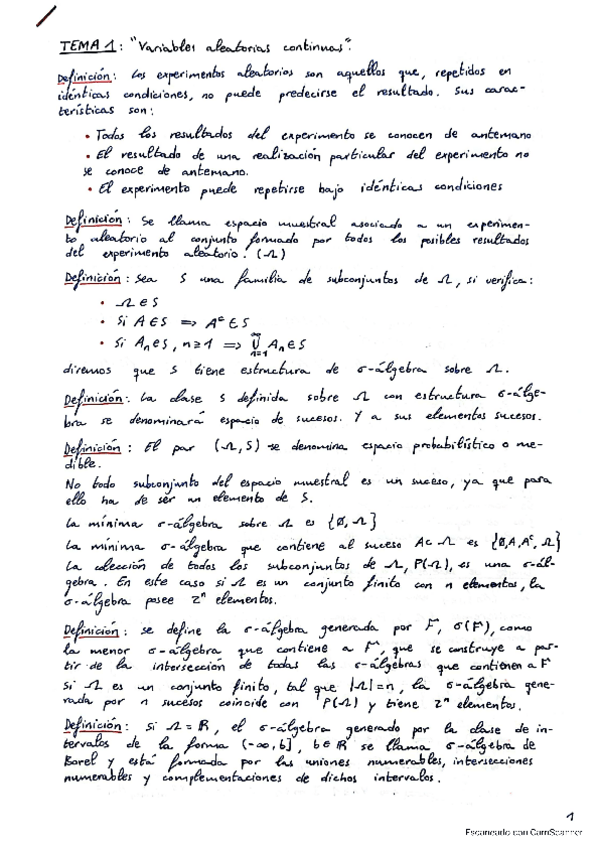 TEMA 1: "Variables aleatorias continuas".
Definición: Los experimentos aleatorios son aquellos que, repetidos en
idénticas condiciones, no puede predecirse el resultado. Sus carac-
terísticas son:
• Todos los resultados del experimento se conocen de antemano
• El resultado de una realización particular del experimento no
se conoce de antemano.
• El experimento puede repetirse bajo idénticas condiciones
Definición: Se llama espacio muestral asociado a un experimen-
to aleatorio al conjunto formado por todos los posibles resultados
del experimento aleatorio. (Ω)
Definición: Sea S una familia de subconjuntos de Ω, si verifica:
• Ω ∈ S
• Si A ∈ S ⇒ Aᶜ ∈ S
• Si Aₙ ∈ S, n ≥ 1 ⇒ ⋃ₙ₌₁^∞ Aₙ ∈ S
diremos que S tiene estructura de σ-álgebra sobre Ω.
Definición: La clase S definida sobre Ω con estructura σ-álge-
bra se denominará espacio de sucesos. Y a sus elementos sucesos.
Definición: El par (Ω, S) se denomina espacio probabilístico o me-
dible.
No todo subconjunto del espacio muestral es un suceso, ya que para
ello ha de ser un elemento de S.
La mínima σ-álgebra sobre Ω es {∅, Ω}
La mínima σ-álgebra que contiene al suceso A⊂Ω es {∅, A, Aᶜ, Ω}
La colección de todos los subconjuntos de Ω, P(Ω), es una σ-ál-
gebra. En este caso si Ω es un conjunto finito con n elementos, la
σ-álgebra posee 2ⁿ elementos.
Definición: Se define la σ-álgebra generada por F, σ(F), como
la menor σ-álgebra que contiene a F, que se construye a par-
tir de la intersección de todas las σ-álgebras que contienen a F
Si Ω es un conjunto finito, tal que |Ω|=n, la σ-álgebra gene-
rada por n sucesos coincide con P(Ω) y tiene 2ⁿ elementos.
Definición: Si Ω = ℝ, el σ-álgebra generado por la clase de in-
tervalos de la forma (-∞, b], b∈ℝ se llama σ-álgebra de
Borel y está formada por las uniones numerables, intersecciones
numerables y complementaciones de dichos intervalos.
1
Escaneado con CamScanner